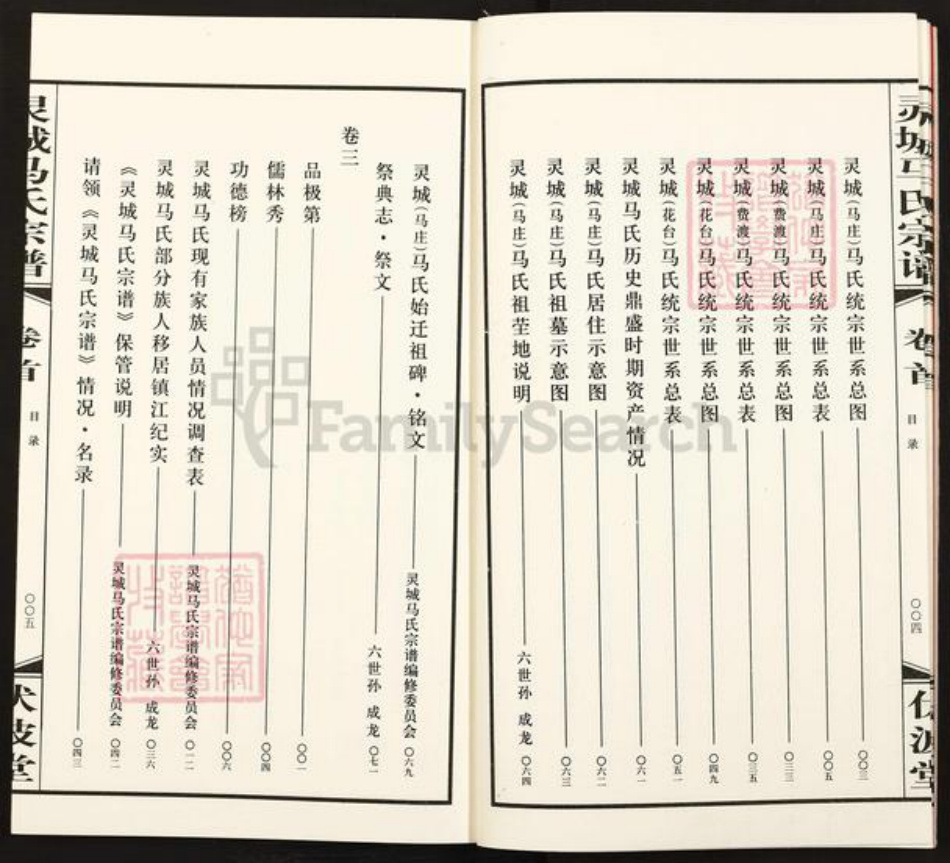 灵城马氏宗谱 卷首 目录 〇〇四 伏波堂
灵城(马庄)马氏统宗世系总图 〇〇三
灵城(马庄)马氏统宗世系总表 〇〇五
灵城(费渡)马氏统宗世系总图 〇三三
灵城(费渡)马氏统宗世系总表 〇三五
灵城(花台)马氏统宗世系总图 〇四九
灵城(花台)马氏统宗世系总表 〇五一
灵城马氏历史鼎盛时期资产情况 〇六一
灵城(马庄)马氏居住示意图 〇六二
灵城(马庄)马氏祖墓示意图 〇六三
灵城(马庄)马氏祖茔地说明 六世孙 成龙 〇六四
灵城(马庄)马氏始迁祖碑·铭文 灵城马氏宗谱编修委员会 〇六九
祭典志·祭文 六世孙 成龙 〇七一
卷三
品极第 〇〇一
儒林秀 〇〇四
功德榜 〇〇六
灵城马氏现有家族人员情况调查表 灵城马氏宗谱编修委员会 〇一二
灵城马氏部分族人移居镇江纪实 六世孙 成龙 〇三六
《灵城马氏宗谱》保管说明 灵城马氏宗谱编修委员会 〇四二
请领《灵城马氏宗谱》情况·名录 〇四三
灵城马氏宗谱 卷首 目录 〇〇五 伏波堂
FamilySearch